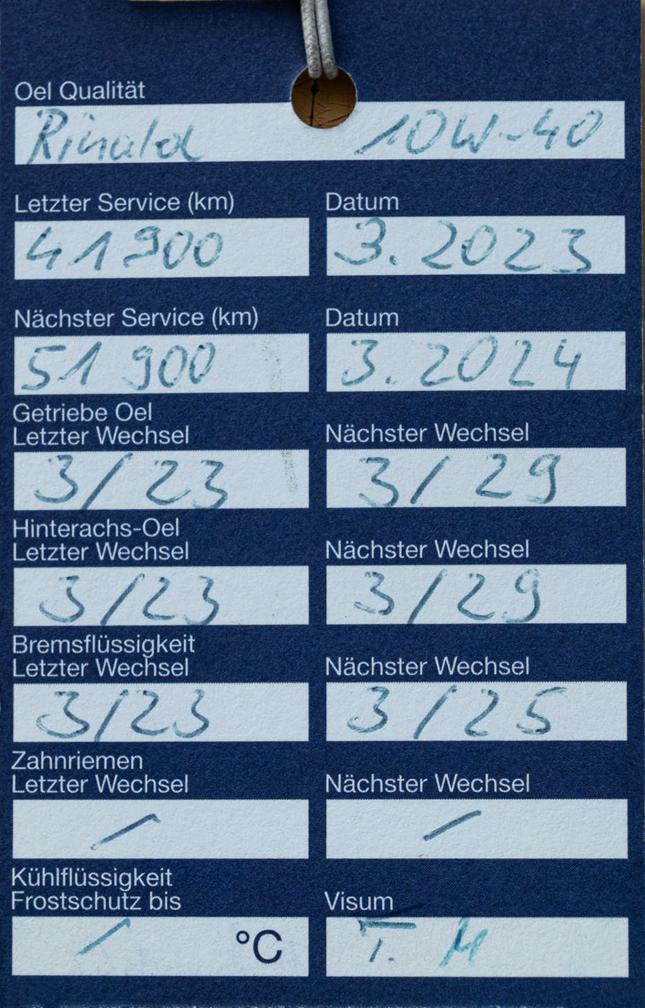 Oel Qualität
Rinald 10W-40
Letzter Service (km) Datum
41900 3.2023
Nächster Service (km) Datum
51900 3.2024
Getriebe Oel
Letzter Wechsel Nächster Wechsel
3/23 3/29
Hinterachs-Oel
Letzter Wechsel Nächster Wechsel
3/23 3/29
Bremsflüssigkeit
Letzter Wechsel Nächster Wechsel
3/23 3/25
Zahnriemen
Letzter Wechsel Nächster Wechsel
/ /
Kühlflüssigkeit
Frostschutz bis Visum
/ °C T. M